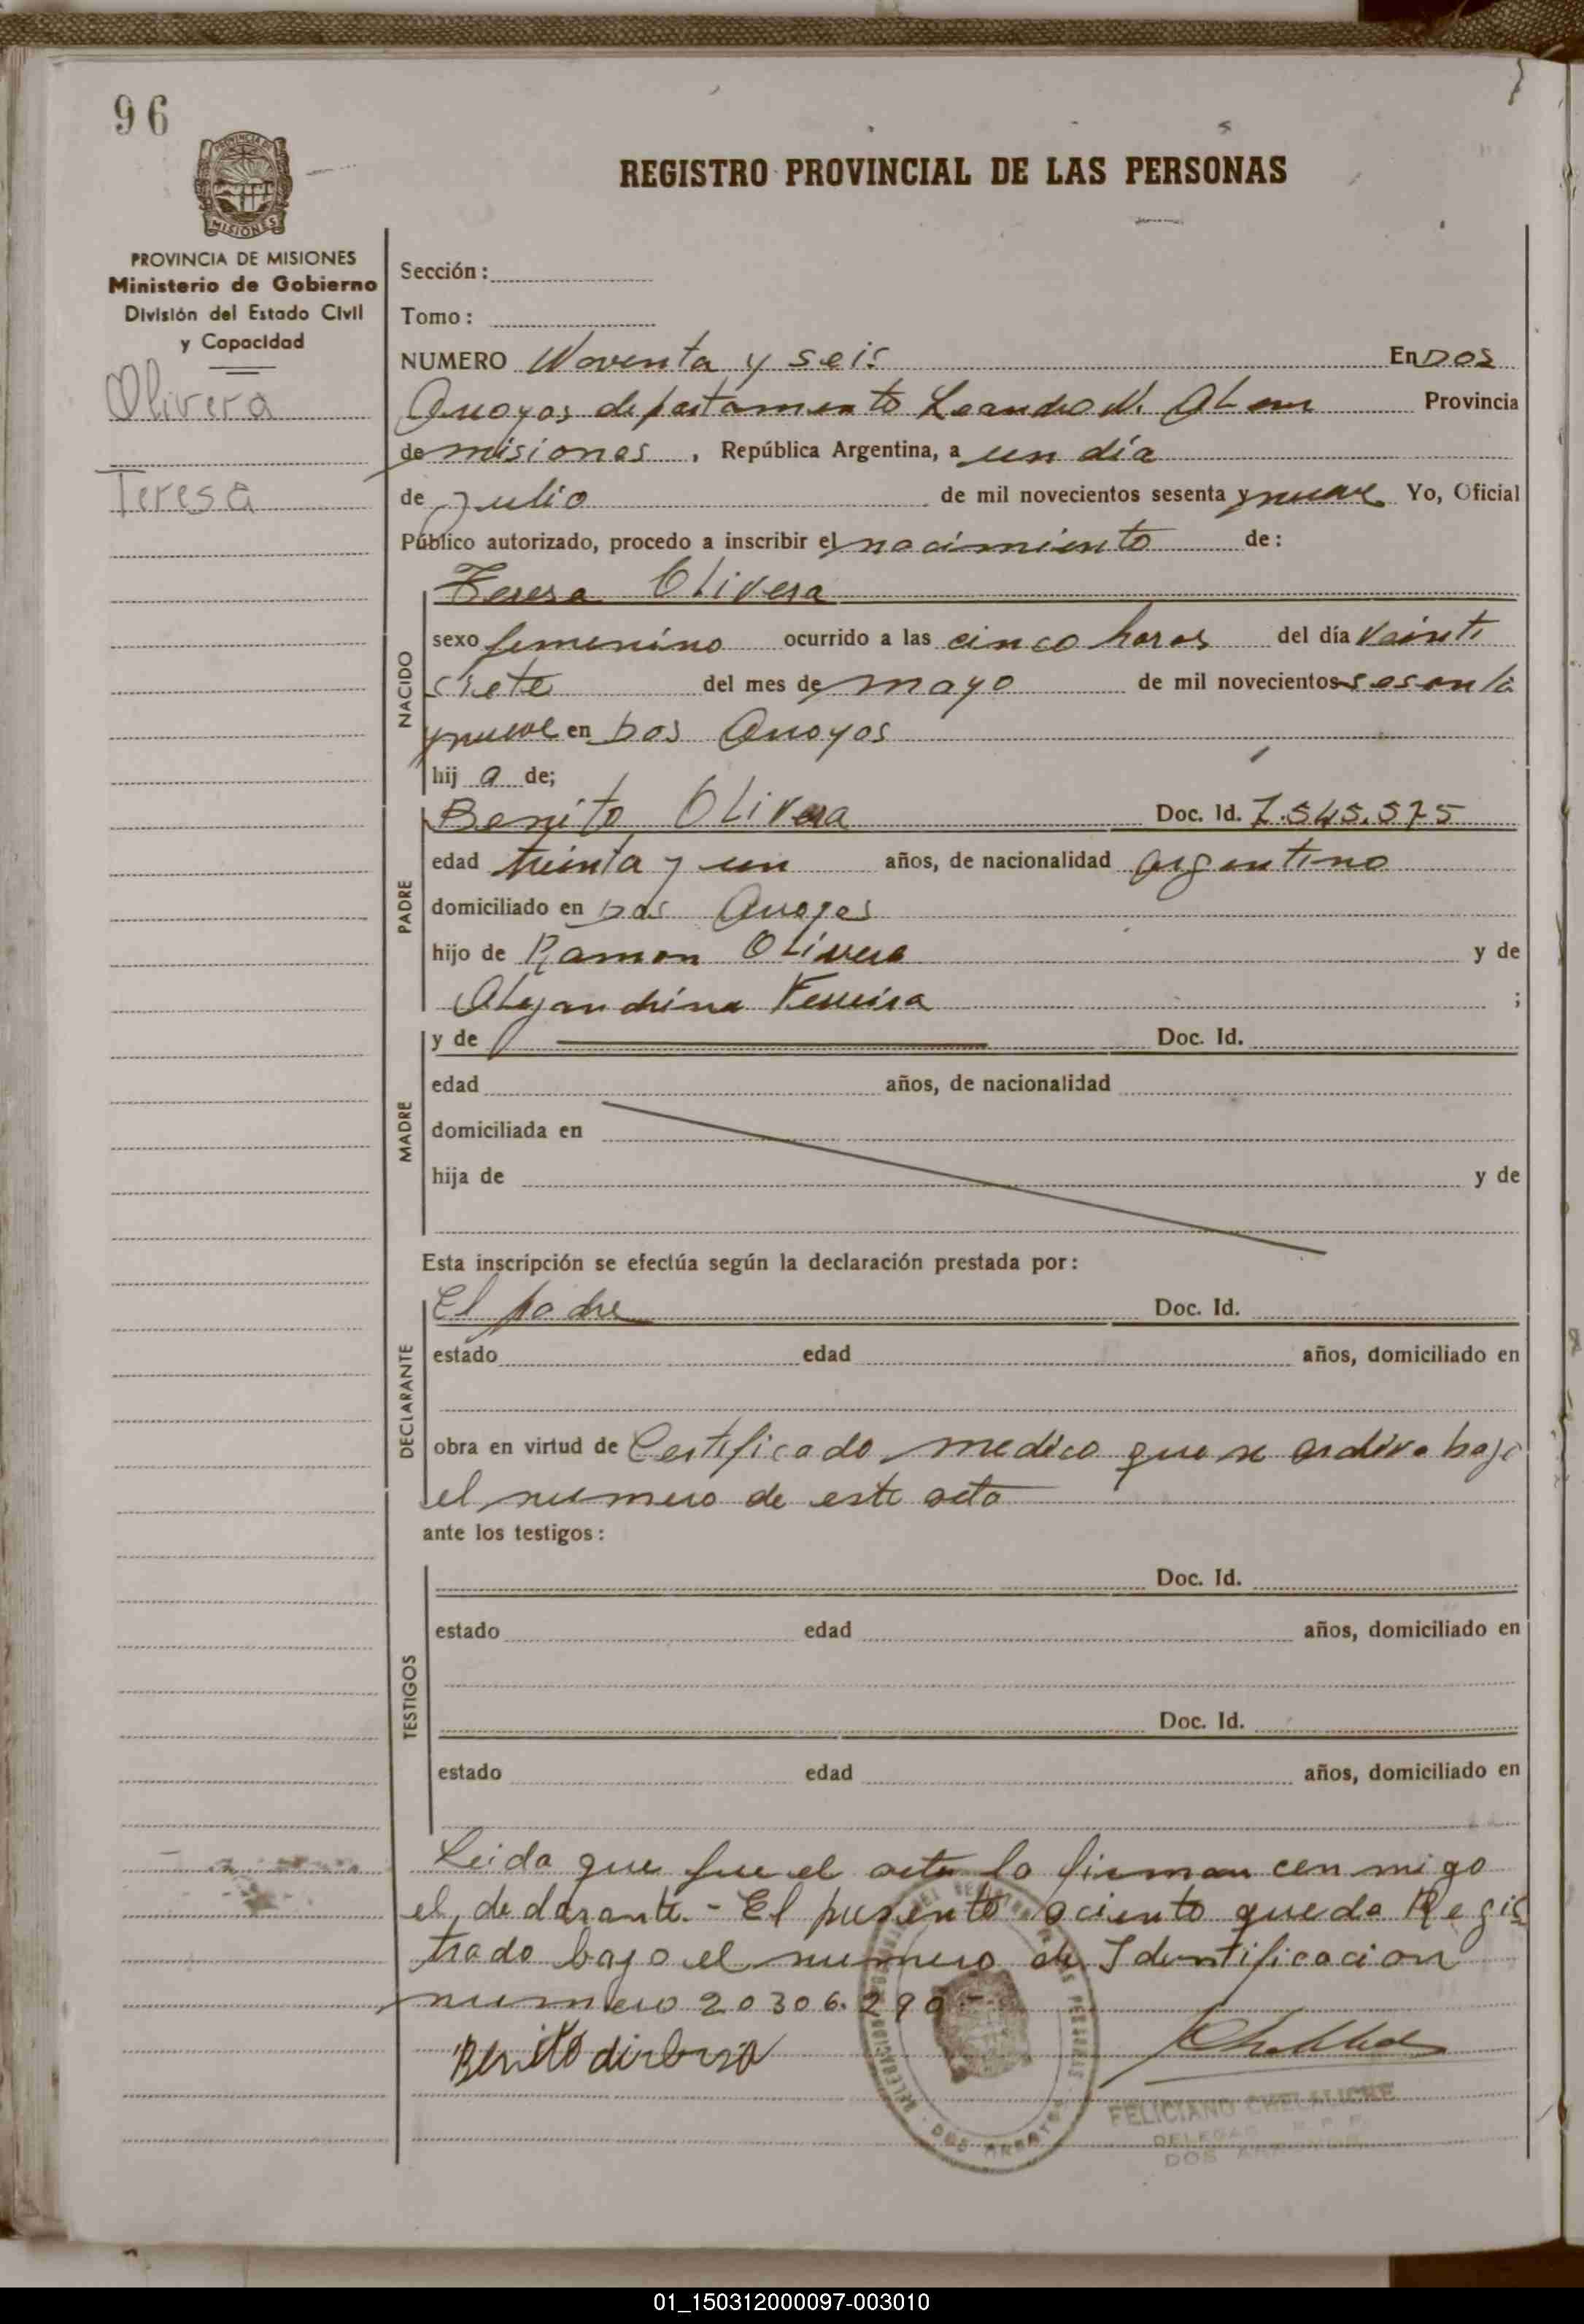 96
REGISTRO PROVINCIAL DE LAS PERSONAS
PROVINCIA DE MISIONES
Ministerio de Gobierno
División del Estado Civil
y Capacidad
Olivera
Teresa
Sección:
Tomo:
NUMERO Noventa y seis En Dos
Arroyos departamento Leandro N. Alem Provincia
de misiones, República Argentina, a un día
de Julio de mil novecientos sesenta y nueve Yo, Oficial
Público autorizado, procedo a inscribir el nacimiento de:
NACIDO
Teresa Olivera
sexo femenino ocurrido a las cinco horas del día veinti
siete del mes de mayo de mil novecientos sesenta
y nueve en Dos Arroyos
hij a de;
PADRE
Benito Olivera Doc. Id. 7.545.575
edad treinta y un años, de nacionalidad argentino
domiciliado en Dos Arroyos
hijo de Ramon Olivera y de
Alejandrina Ferreira ;
MADRE
y de Doc. Id.
edad años, de nacionalidad
domiciliada en
hija de y de
Esta inscripción se efectúa según la declaración prestada por:
DECLARANTE
El padre Doc. Id.
estado edad años, domiciliado en
obra en virtud de Certificado medico que se archiva bajo
el numero de este acta
ante los testigos:
TESTIGOS
Doc. Id.
estado edad años, domiciliado en
Doc. Id.
estado edad años, domiciliado en
Leida que fue el acta la firman con migo
el declarante.- El presente aciento queda Regis
trado bajo el numero de Identificacion
numero 20306.290-
Benito
FELICIANO CHELALICHE
DELEGADO R. P. P.
DOS ARROYOS
01_150312000097-003010